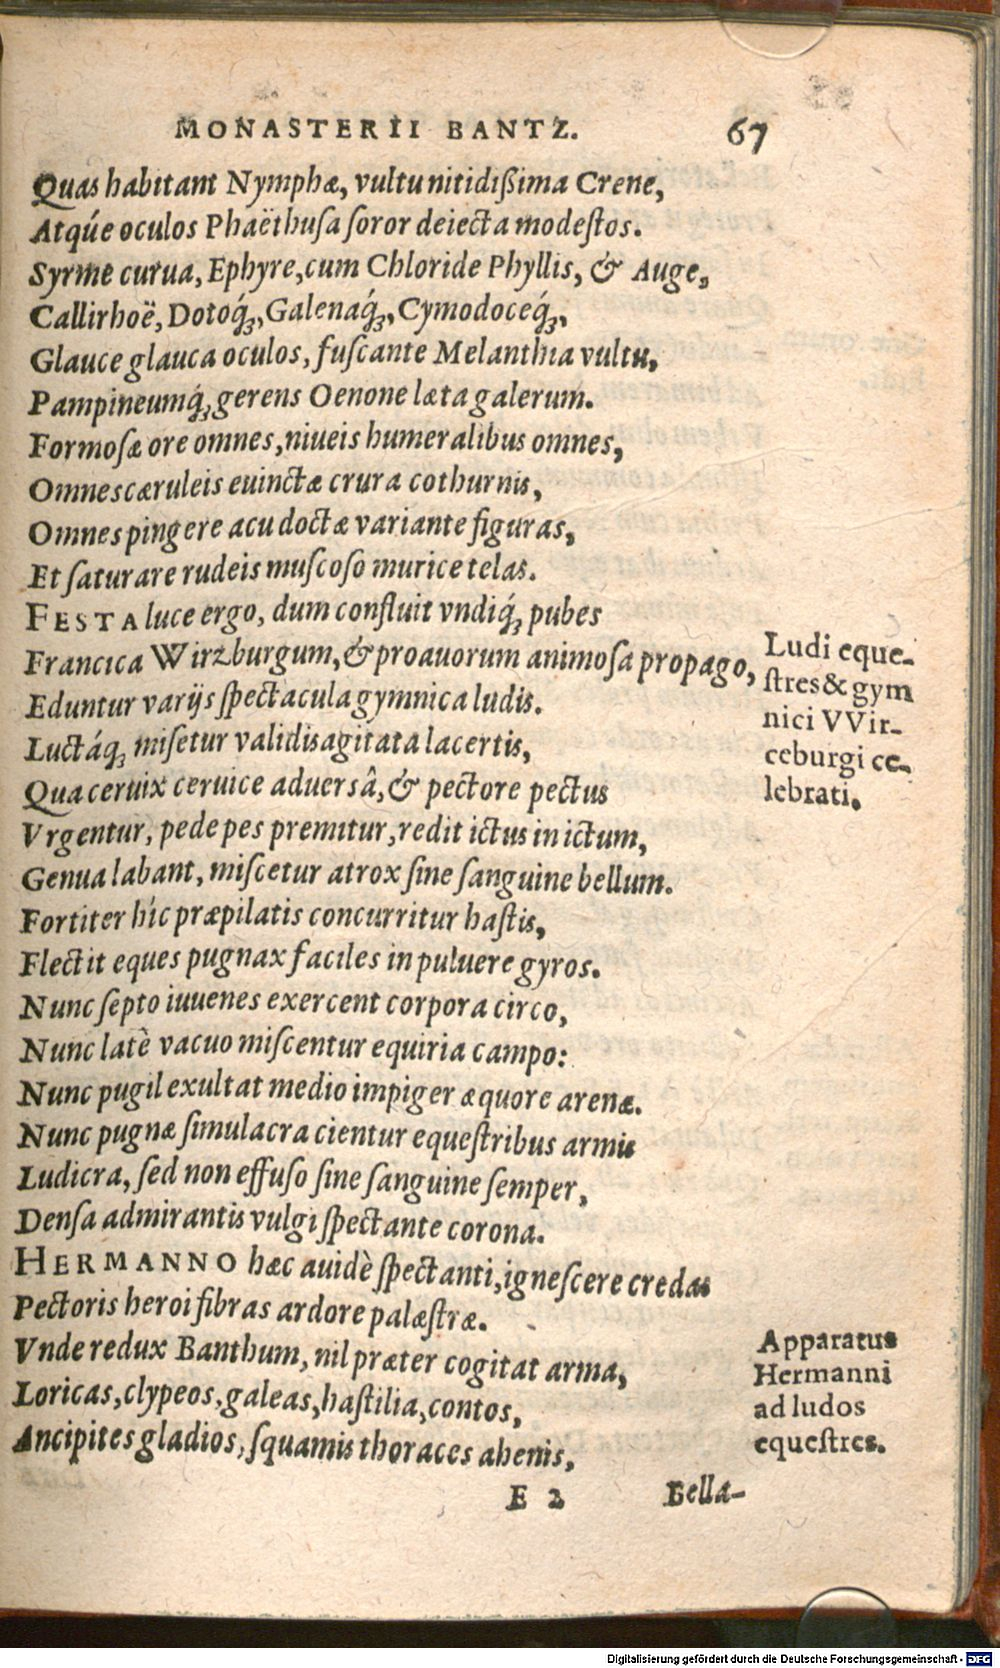 MONASTERII BANTZ. 67
Quas habitant Nymphæ, vultu nitidißima Crene,
Atq́ue oculos Phaëthusa soror deiecta modestos.
Syrme curua, Ephyre, cum Chloride Phyllis, & Auge,
Callirhoë, Dotoq́ꝫ, Galenaq́ꝫ, Cymodoceq́ꝫ,
Glauce glauca oculos, fuscante Melanthia vultu,
Pampineumq́ꝫ gerens Oenone læta galerum.
Formosæ ore omnes, niueis humeralibus omnes,
Omnes cæruleis euinctæ crura cothurnis,
Omnes pingere acu doctæ variante figuras,
Et saturare rudeis muscoso murice telas.
FESTA luce ergo, dum confluit vndiq́ꝫ pubes
Francica Wirzburgum, & proauorum animosa propago,
Eduntur varijs spectacula gymnica ludis.
Luctáqꝫ misetur validis agitata lacertis,
Qua ceruix ceruice aduersâ, & pectore pectus
Vrgentur, pede pes premitur, redit ictus in ictum,
Genua labant, miscetur atrox sine sanguine bellum.
Fortiter híc præpilatis concurritur hastis,
Flectit eques pugnax faciles in puluere gyros.
Nunc septo iuuenes exercent corpora circo,
Nunc latè vacuo miscentur equiria campo:
Nunc pugil exultat medio impiger æquore arenæ.
Nunc pugnæ simulacra cientur equestribus armis
Ludicra, sed non effuso sine sanguine semper,
Densa admirantis vulgi spectante corona.
HERMANNO hæc auidè spectanti, ignescere credas
Pectoris heroi fibras ardore palæstræ.
Vnde redux Banthum, nil præter cogitat arma,
Loricas, clypeos, galeas, hastilia, contos,
Ancipites gladios, squamis thoraces ahenis,
E 2 Bella-
Ludi eque-
stres & gym
nici VVir-
ceburgi ce-
lebrati.
Apparatus
Hermanni
ad ludos
equestres.
Digitalisierung gefördert durch die Deutsche Forschungsgemeinschaft - DFG